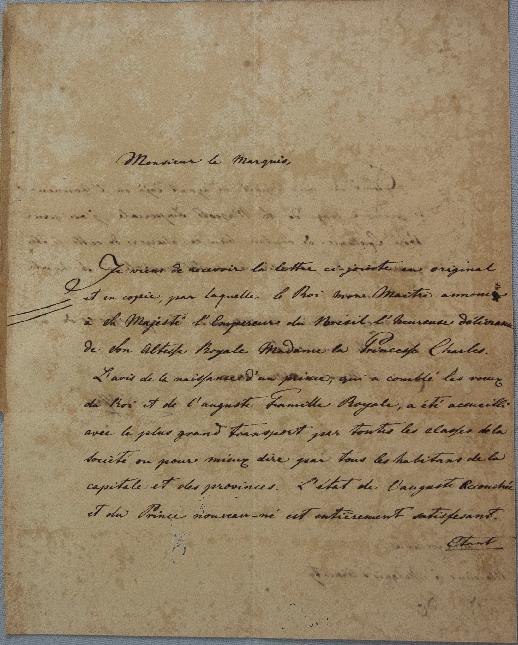 Monsieur le Marquis,
Je viens de recevoir la lettre ci-jointe en original
et en copie, par laquelle le Roi mon Maitre annonce
à Sa Majesté l'Empereur du Brésil l'heureuse délivrance
de Son Altesse Royale Madame la Princesse Charles.
L'avis de la naissance d'un prince, qui a comblé les voeux
du Roi et de l'auguste Famille Royale, a été accueilli
avec le plus grand transport par toutes les classes de la
société ou pour mieux dire par tous les habitans de la
capitale et des provinces. L'état de l'auguste Accouchée
et du Prince nouveau-né est entièrement satisfesant.
Etant